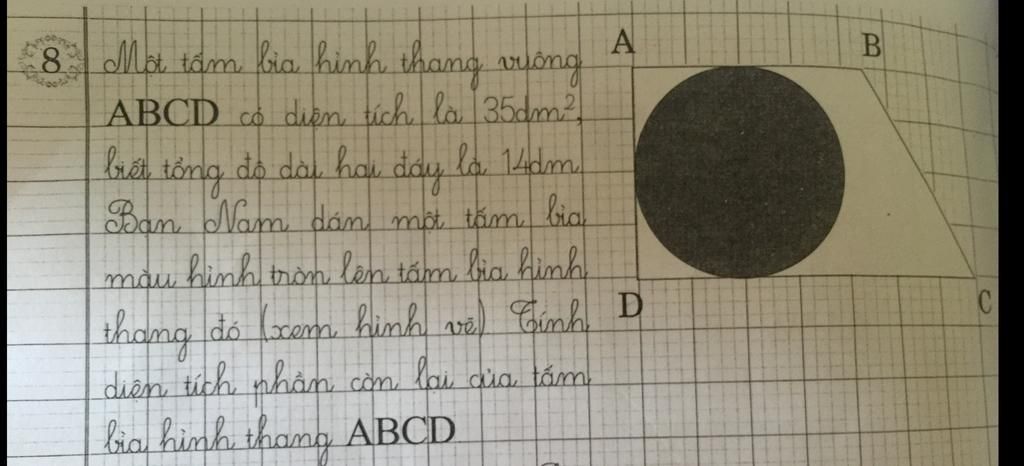 8 Một tấm bìa hình thang vuông
ABCD có diện tích là 35dm²,
biết tổng độ dài hai đáy là 14dm
Bạn Nam dán một tấm bìa
màu hình tròn lên tấm bìa hình
thang đó (xem hình vẽ) Tính
diện tích phần còn lại của tấm
bìa hình thang ABCD
A B
D C